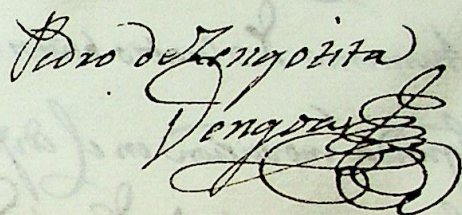 Pedro de Zengotita
Vengoa